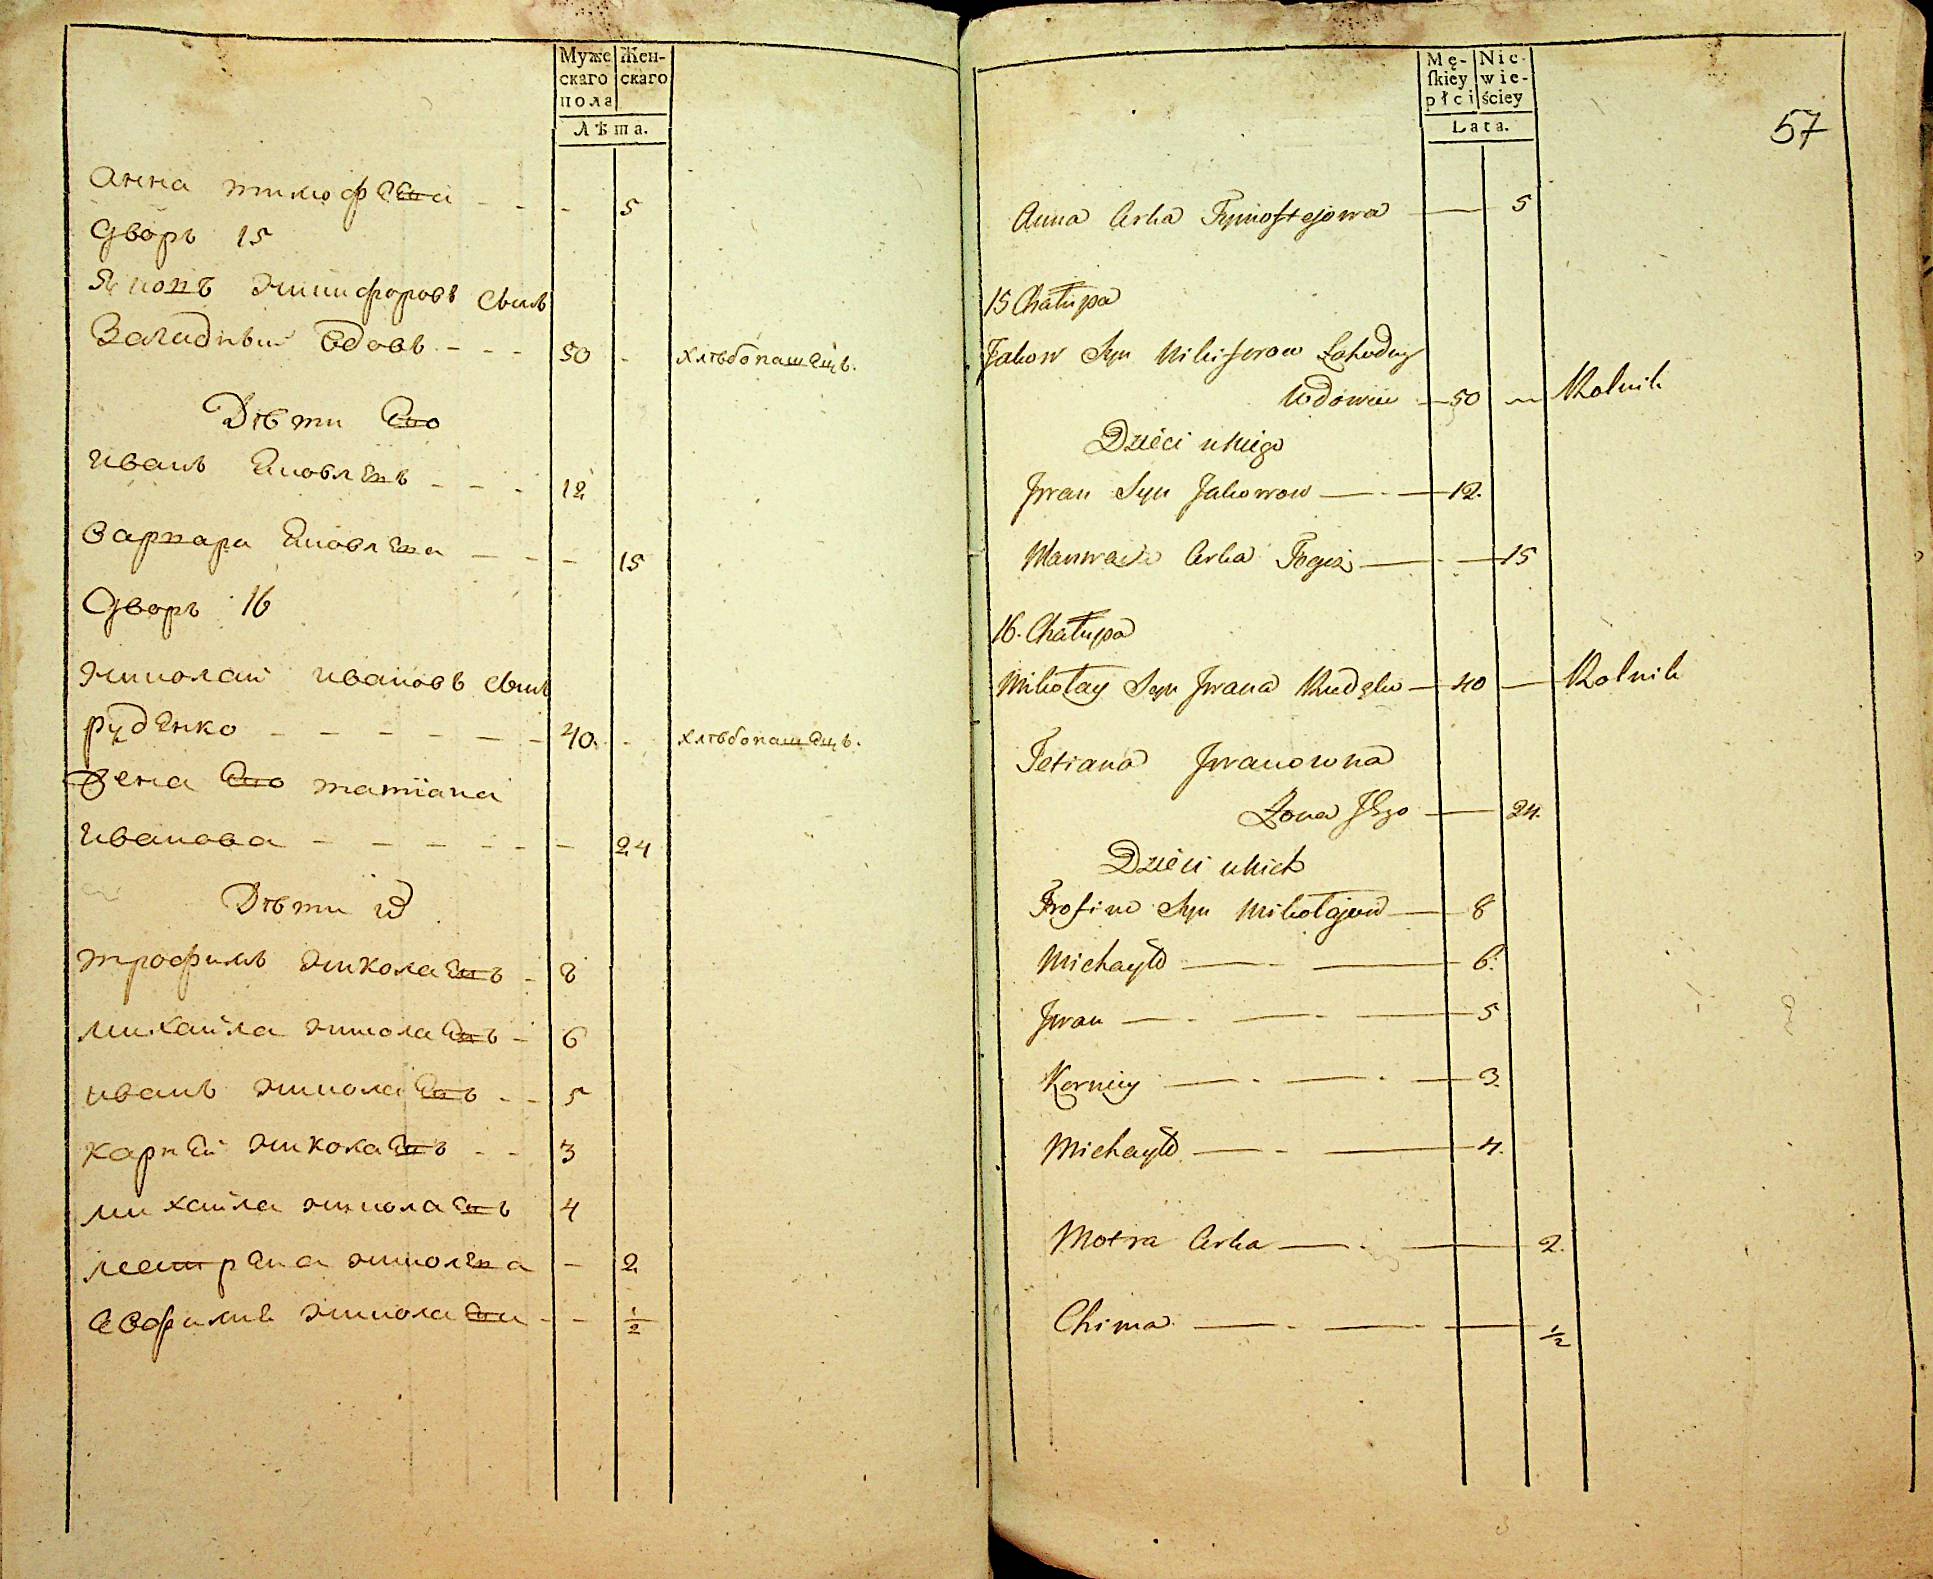 Муже Жен-
скаго скаго
пола
Лѣта.
анна тимофеева - - - 5
дворъ 15
Яковъ Никифоровъ сынъ
Загидный вдовъ - - - 50 - хлѣбопашецъ.
Дѣти Его
иванъ Яковлевъ - - - 12
варвара Яковлева - - - 15
дворъ 16
Николай ивановъ сынъ
руденко - - - - - - 40. - хлѣбопашецъ.
жена Его татїана
иванова - - - - - - 24
Дѣти их
трофимъ Николаевъ - 8
михайла Николаевъ - 6
иванъ Николаевъ - - 5
карней Николаевъ - - 3
михайла Николаевъ 4
мотрена Николаева - 2
Николаева - - 1/2
Mę- Nie-
ſkiey wie-
płci ściey
Lata.
57
Anna Crka Tymoftejowa — 5
15 Chałupa
Jakow Syn Nikiforow Zahodny
Wdowiec — 50 — Rolnik
Dzieci u Niego
Jwan Syn Jakowow — . — 12.
Warwara Crka Tegoż — . — 15
16. Chałupa
Mikołay Syn Jwana Rudenko — 40 — Rolnik
Tetiana Jwanowna
Żona Jego — 24.
Dzieci u Nich
Trofim Syn Mikołajow — 8
Michayło — — 6.
Jwan — . — . — 5
Korniey — . — . — 3.
Michayło — - — 4.
Motra Crka — . — 2.
Chima — . — . — 1/2